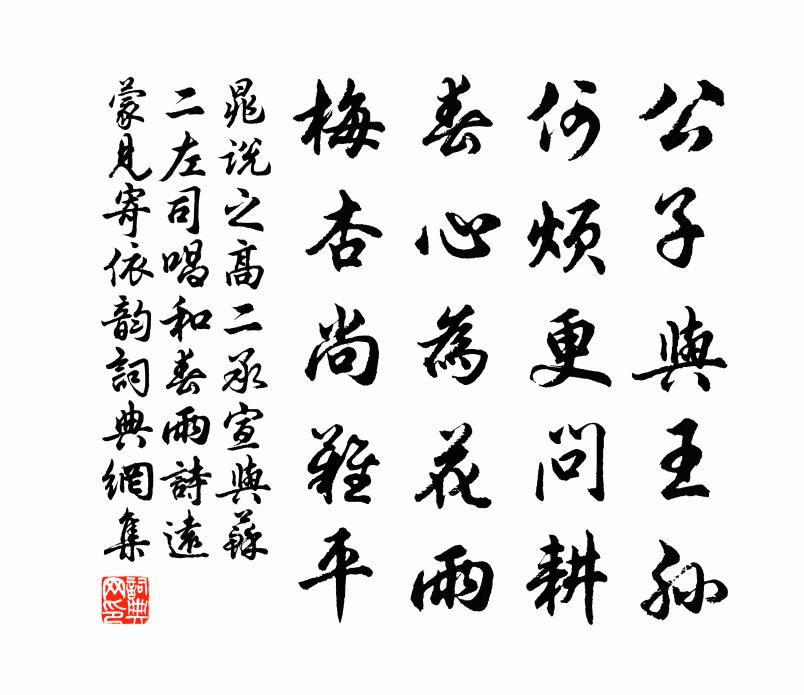 公子與王孫
何煩更問耕
春心為花雨
梅杏尚難平
晁說之高二承宣與蘇
二左司唱和春雨詩遠
蒙見寄依韵詞典網集
詞典网印